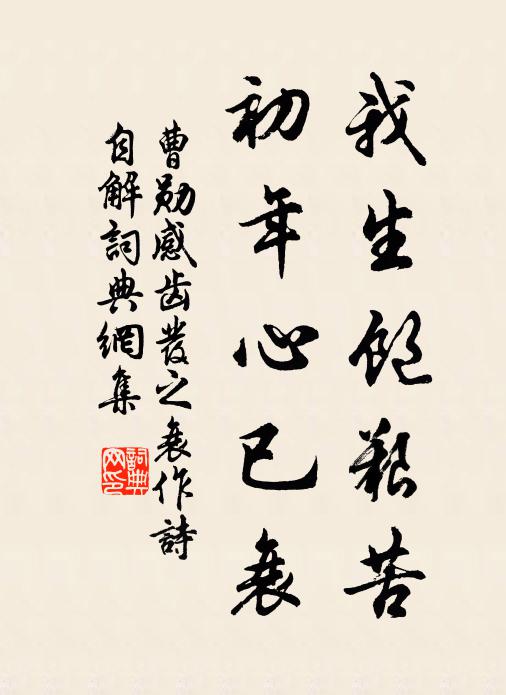 我生飽艱苦
初年心已衰
曹勋感齿發之衰作詩
自解詞典網集
詞典网印